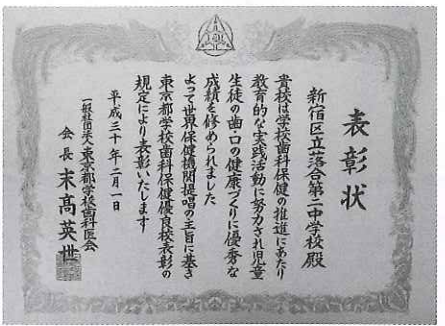 表彰状
新宿区立落合第二中学校殿
貴校は学校歯科保健の推進にあたり
教育的な実践活動に努力され児童
生徒の歯・口の健康づくりに優秀な
成績を修められました
よって世界保健機関提唱の主旨に基き
東京都学校歯科保健優良校表彰の
規定により表彰いたします
平成三十年二月一日
一般社団法人東京都学校歯科医会
会長 末高英世